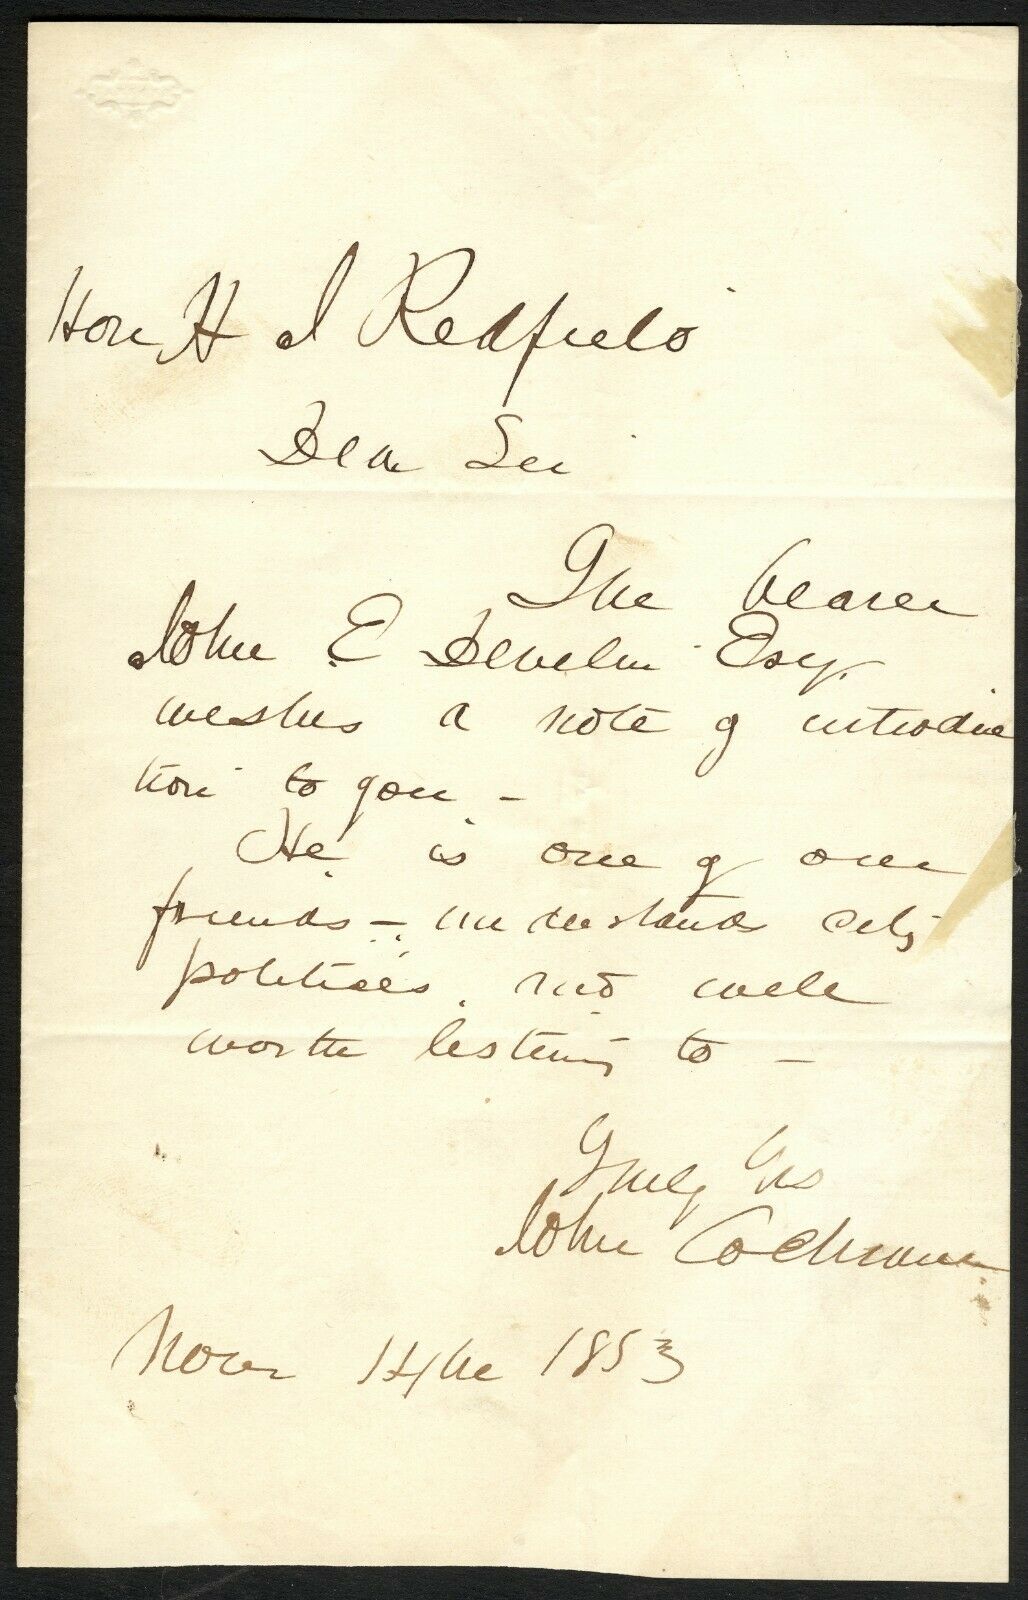 Hon. H J Redfield
Dear Sir
The bearer
John E Develin Esq.
wishes a note of introduc
tion to you -
He is one of our
friends - understands city
politics. and well
worth listening to -
Truly Yrs
John Cochrane
Novr 14th 1853